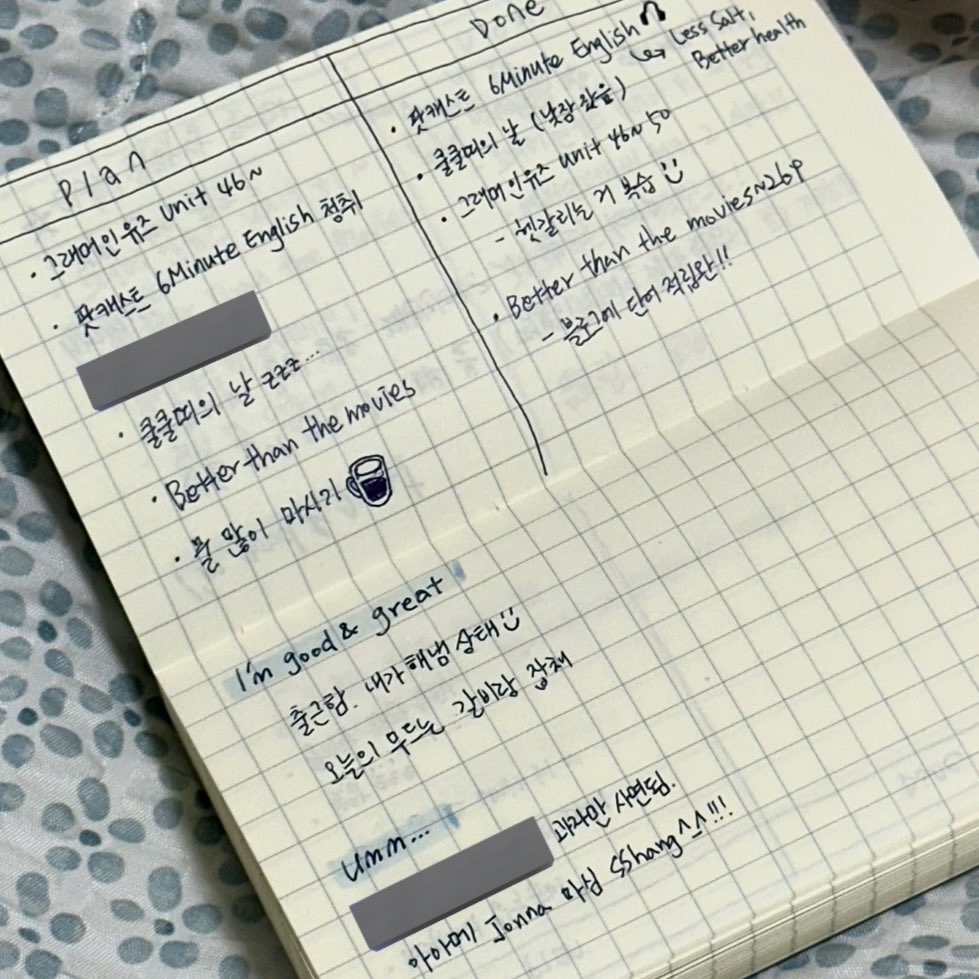 Plan
· 그래머인유즈 Unit 46~
· 팟캐스트 6Minute English 청취
· 쿨쿨띠의 날 zzz...
· Better than the movies
· 물 많이 마시기
Done
· 팟캐스트 6Minute English
↳ Less Salt,
Better health
· 쿨쿨띠의 날 (낮잠 잤음)
· 그래머인유즈 Unit 46~50
- 헷갈리는 거 복습
· Better than the movies~26p
- 블로그에 단어 적립완!!
I'm good & great
출근함. 내가 해냄 상태
오늘의 무드는 갈비랑 잡채
Umm...
과자만 사면됨.
아아메 Jonna 마심 SShang^^!!!